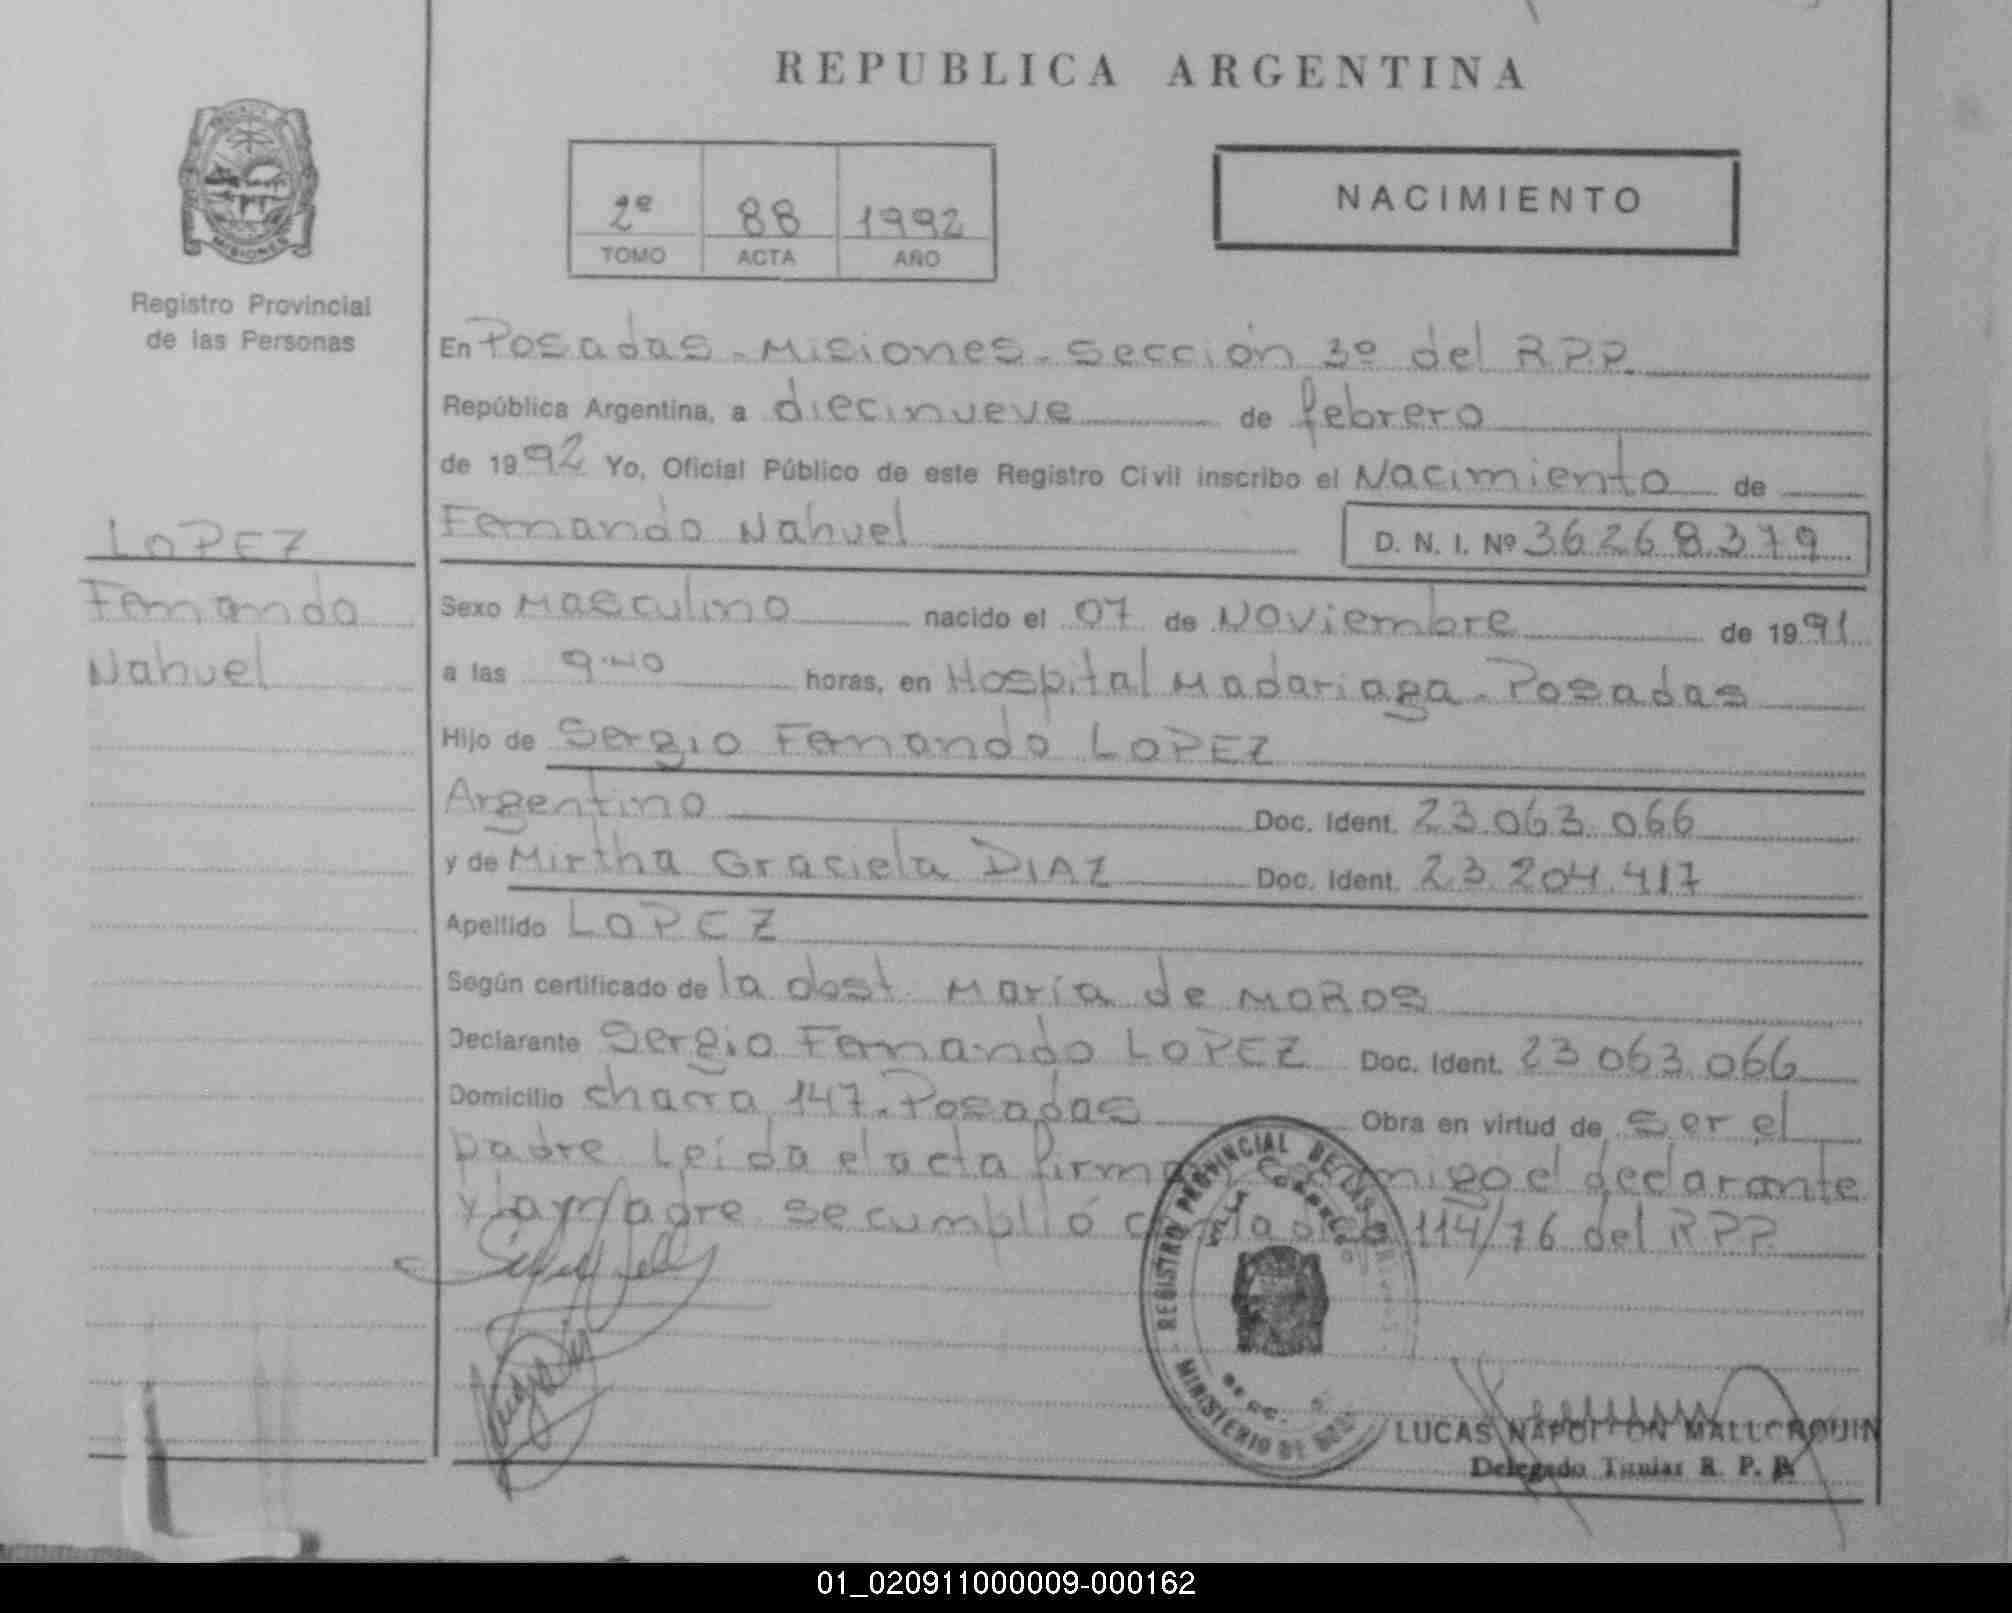 REPUBLICA ARGENTINA
MISIONES
Registro Provincial
de las Personas
2º 88 1992
TOMO ACTA AÑO
NACIMIENTO
LOPEZ
Fernando
Nahuel
En Posadas - Misiones - sección 3º del R.P.P.
República Argentina, a diecinueve de febrero
de 1992 Yo, Oficial Público de este Registro Civil inscribo el Nacimiento de
Fernando Nahuel D. N. I. Nº 36268379
Sexo Masculino nacido el 07 de Noviembre de 1991
a las 9.40 horas, en Hospital Madariaga - Posadas
Hijo de Sergio Fernando LOPEZ
Argentino Doc. Ident. 23.063.066
y de Mirtha Graciela DIAZ Doc. Ident. 23.204.417
Apellido LOPEZ
Según certificado de la obst. María de MOROS
Declarante Sergio Fernando LOPEZ Doc. Ident. 23.063.066
Domicilio chacra 147 - Posadas Obra en virtud de ser el
padre Leída el acta firma conmigo el declarante
y la madre se cumplió con la 114/76 del R.P.P.
REGISTRO PROVINCIAL DE LAS PERSONAS
MINISTERIO DE
LUCAS NAPOLEON MALLORQUIN
Delegado Titular R. P. P.
01_020911000009-000162